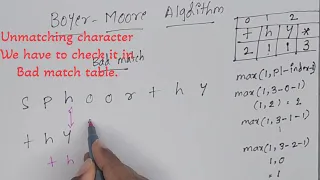 Boyer-Moore Algorithm
Unmatching character
We have to check it in
Bad match table.
Bad match
0 1 2
t h y *
2 1 1 3
S P h o o r t h y
t h y
t h
max(1, pl-index-1)
max(1, 3-0-1)
(1, 2) = 2
max(1, 3-1-1)
1
max(1, 3-2-1)
1, 0
= 1